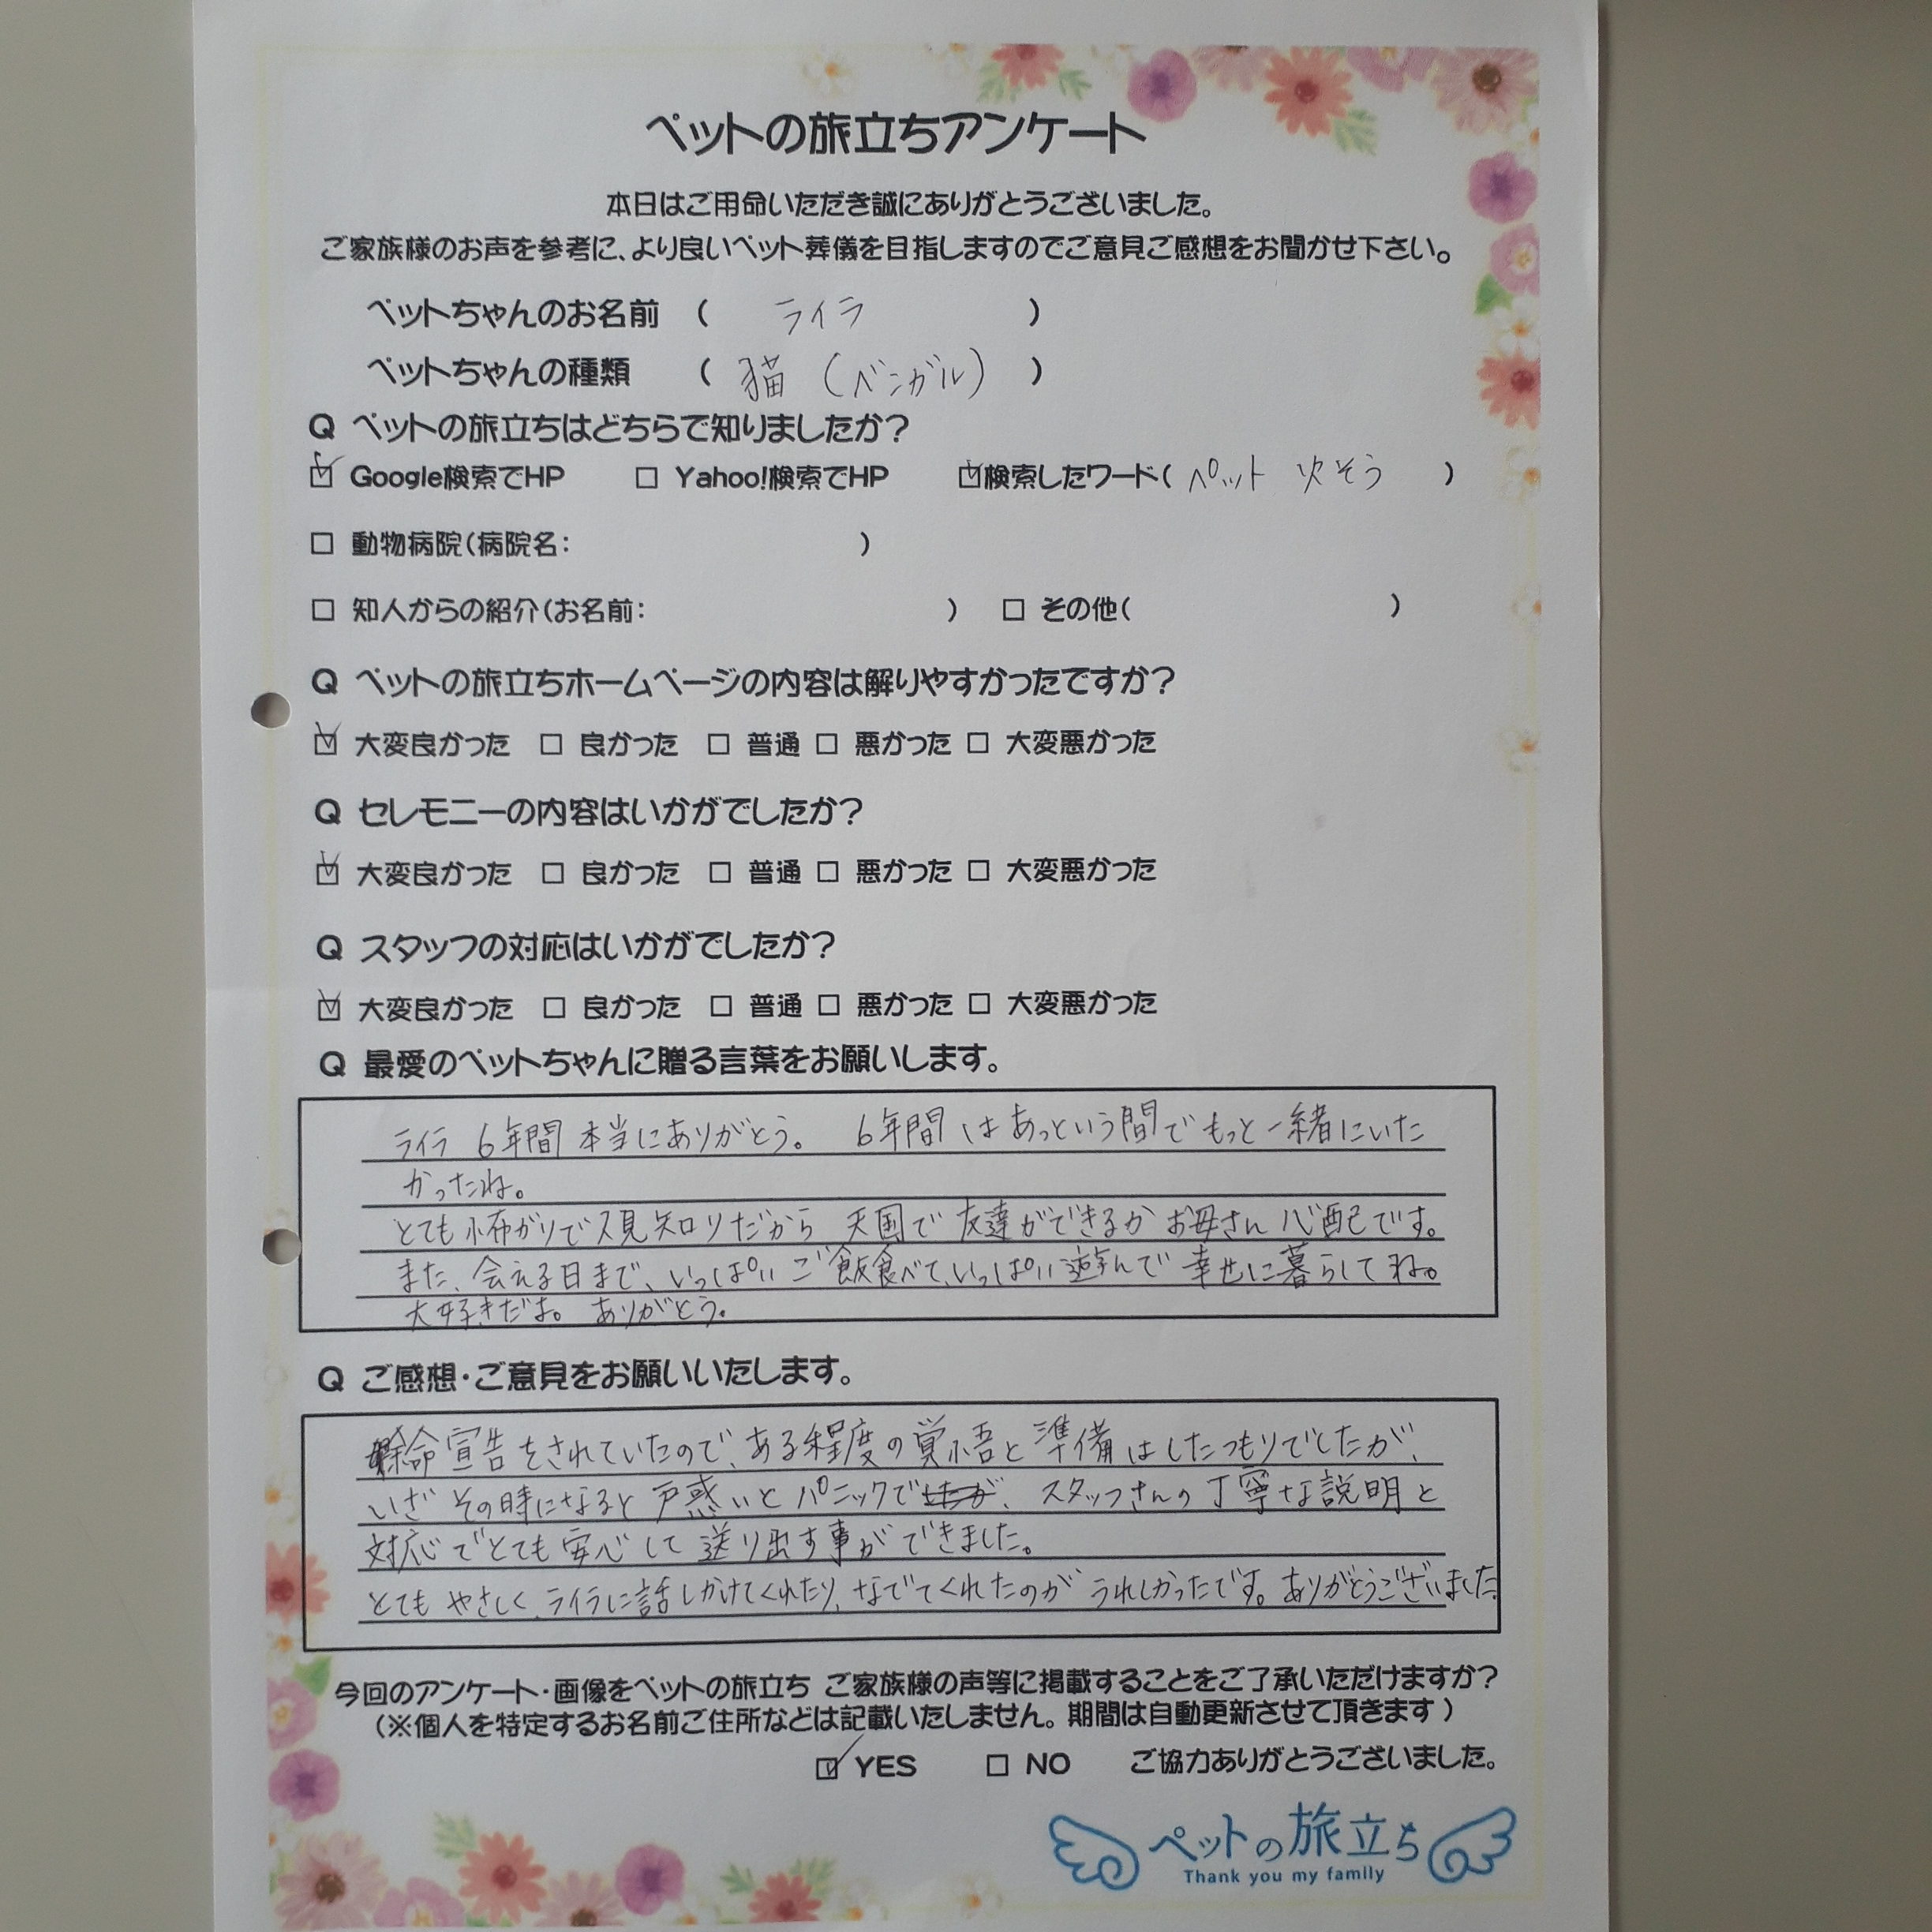 ペットの旅立ちアンケート
本日はご用命いただき誠にありがとうございました。
ご家族様のお声を参考に、より良いペット葬儀を目指しますのでご意見ご感想をお聞かせ下さい。
ペットちゃんのお名前 ( ライラ )
ペットちゃんの種類 ( 猫 (ベンガル) )
Q ペットの旅立ちはどちらで知りましたか?
☑ Google検索でHP □ Yahoo!検索でHP ☑検索したワード( ペット 火そう )
□ 動物病院(病院名: )
□ 知人からの紹介(お名前: ) □ その他( )
Q ペットの旅立ちホームページの内容は解りやすかったですか?
☑ 大変良かった □ 良かった □ 普通 □ 悪かった □ 大変悪かった
Q セレモニーの内容はいかがでしたか?
☑ 大変良かった □ 良かった □ 普通 □ 悪かった □ 大変悪かった
Q スタッフの対応はいかがでしたか?
☑ 大変良かった □ 良かった □ 普通 □ 悪かった □ 大変悪かった
Q 最愛のペットちゃんに贈る言葉をお願いします。
ライラ 6年間 本当にありがとう。 6年間はあっという間でもっと一緒にいた
かったね。
とても怖がりで人見知りだから 天国で 友達ができるか お母さん 心配です。
また、会える日まで、いっぱい ご飯食べて、いっぱい遊んで 幸せに暮らしてね。
大好きだよ。 ありがとう。
Q ご感想・ご意見をお願いいたします。
余命宣告をされていたので、ある程度の覚悟と準備はしたつもりでしたが、
いざ その時になると 戸惑いと パニックで したが、スタッフさんの 丁寧な説明と
対応でとても安心して 送り出す事ができました。
とても やさしく、ライラに話しかけてくれたり、なでてくれたのが うれしかったです。ありがとうございました。
今回のアンケート・画像をペットの旅立ち ご家族様の声等に掲載することをご了承いただけますか?
(※個人を特定するお名前ご住所などは記載いたしません。期間は自動更新させて頂きます)
☑ YES □ NO ご協力ありがとうございました。
ペットの旅立ち
Thank you my family